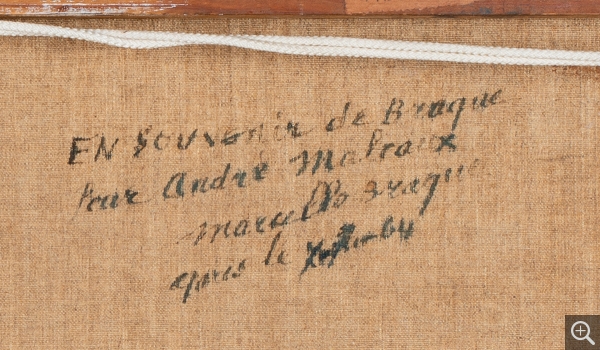 EN SOUVENIR de Braque
Pour André Malraux
Marcelle Braque
Paris le 64